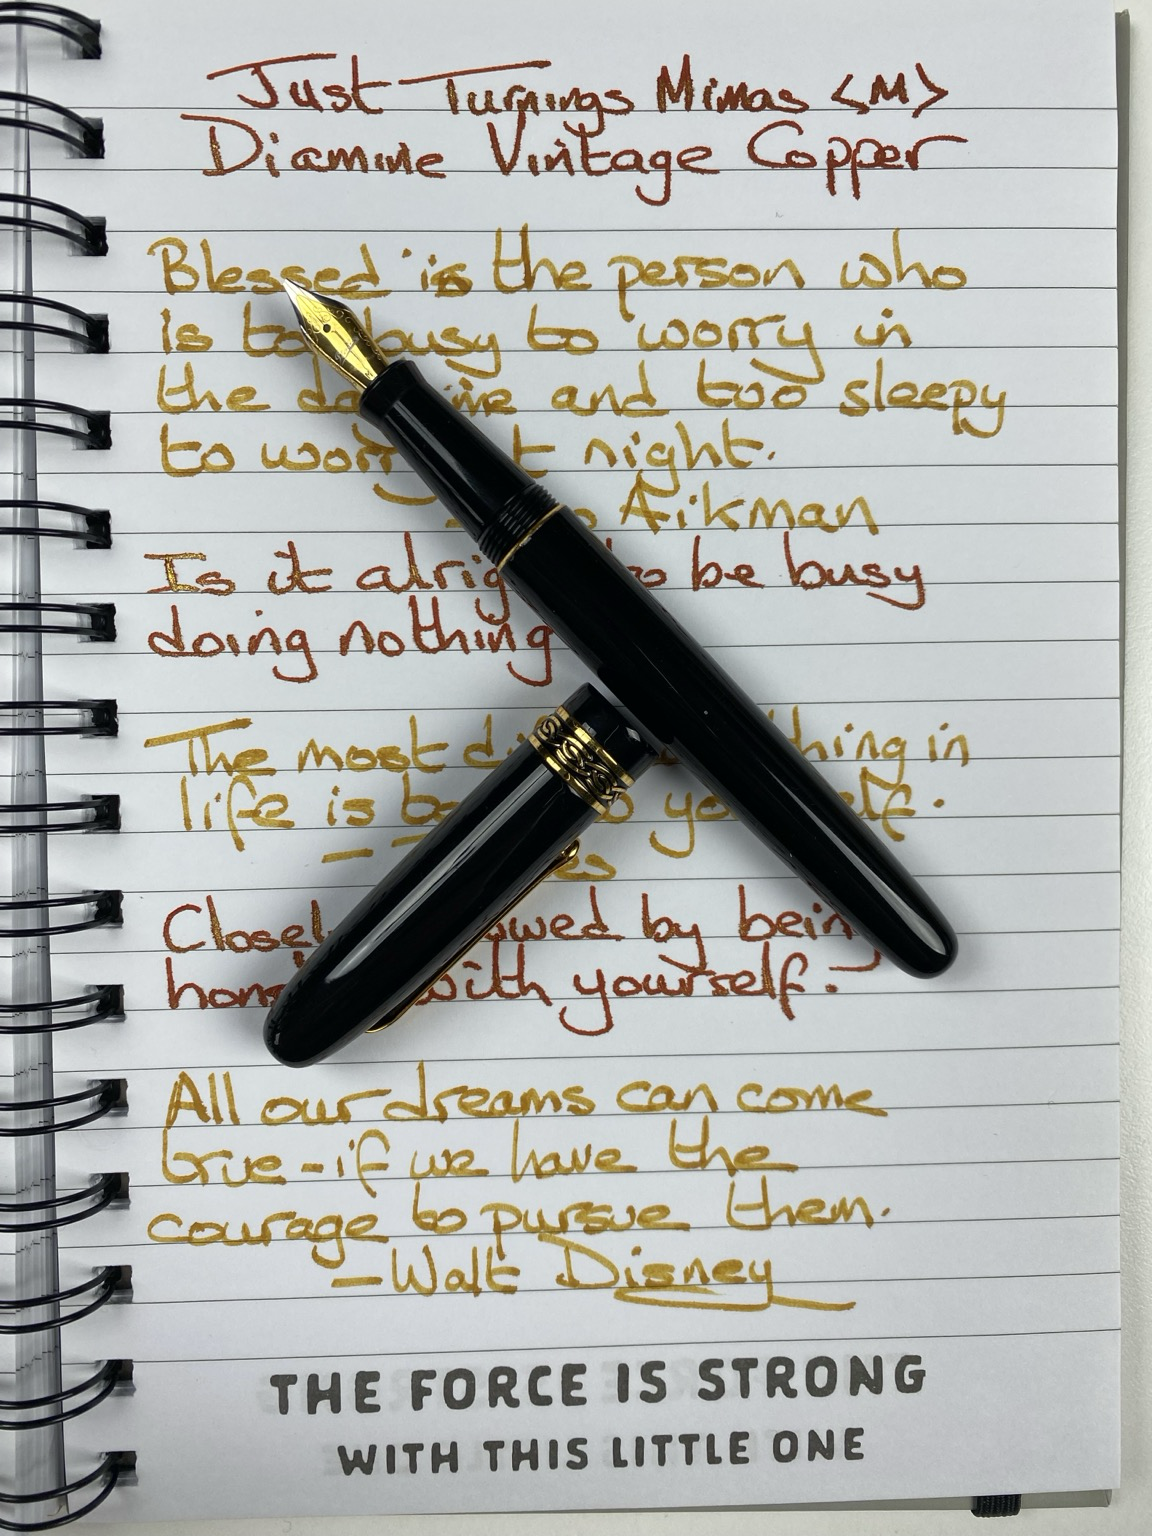 Just Turnings Mimas <M>
Diamine Vintage Copper
Blessed is the person who
is too busy to worry in
the daytime and too sleepy
to worry at night.
Aikman
Is it alright to be busy
doing nothing
The most thing in
life is to yourself.
Closely followed by being
honest with yourself.
All our dreams can come
true - if we have the
courage to pursue them.
- Walt Disney
THE FORCE IS STRONG
WITH THIS LITTLE ONE